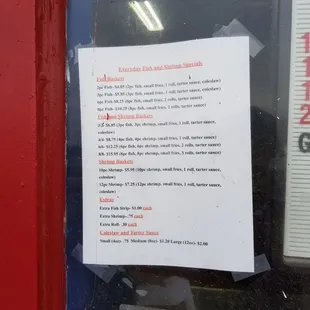 Everyday Fish and Shrimp Specials
Fish Baskets
2pc Fish- $4.85 (2pc fish, small fries, 1 roll, tarter sauce, coleslaw)
3pc Fish- $5.85 (3pc fish, small fries, 1 roll, tarter sauce, coleslaw)
fish, small fries, 2 rolls, tarter sauce, coleslaw)
fish, small fries, 2 rolls, tarter sauce, coleslaw)
Fish and Shrimp Baskets
shrimp, small fries, 1 roll, tarter sauce,
coleslaw)
shrimp, small fries, 1 roll, tarter sauce, coleslaw)
shrimp, small fries, 2 rolls, tarter sauce, coleslaw)
shrimp, small fries, 2 rolls, tarter sauce, coleslaw)
Shrimp Baskets
10pc Shrimp- $5.95 (10pc shrimp, small fries, 1 roll, tarter sauce,
coleslaw)
12pc Shrimp- $7.25 (12pc shrimp, small fries, 1 roll, tarter sauce,
coleslaw)
Extras
Extra Fish Strip- $1.00 each
Extra Shrimp- .75 each
Extra Roll- .30 each
Coleslaw and Tarter Sauce
Small (4oz)- .75 Medium (8oz)- $1.20 Large (12oz)- $2.00